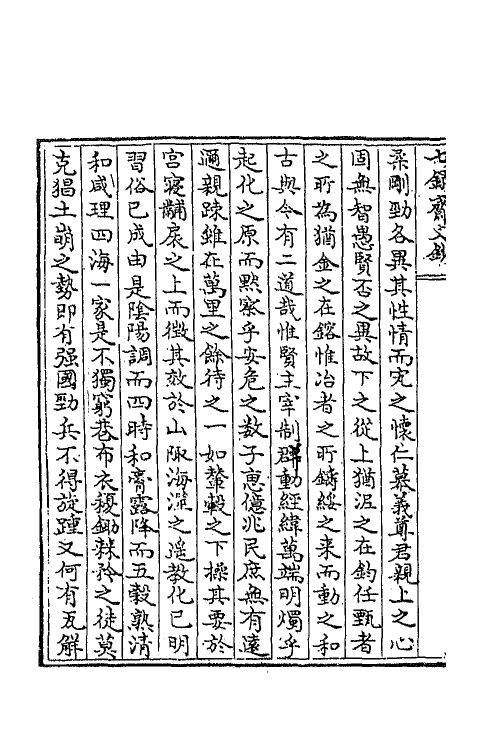 七錄齋文鈔
柔剛勁各異其性情而究之懷仁慕義尊君親上之心
固無智愚賢否之異故下之從上猶泥之在鈞任甄者
之所為猶金之在鎔惟冶者之所鑄綏之来而動之和
古與今有二道哉惟賢主宰制群動經緯萬端明燭乎
起化之原而黙察乎安危之数子恵億兆民庶無有遠
邇親踈雖在萬里之餘待之一如輦轂之下操其要於
宫寝黼扆之上而徴其效於山陬海澨之遥教化已明
習俗已成由是陰陽調而四時和膏露降而五穀熟清
和咸理四海一家是不獨窮巷布衣耰鋤棘矜之徒莫
克猖土崩之勢即有强國勁兵不得旋踵又何有瓦解